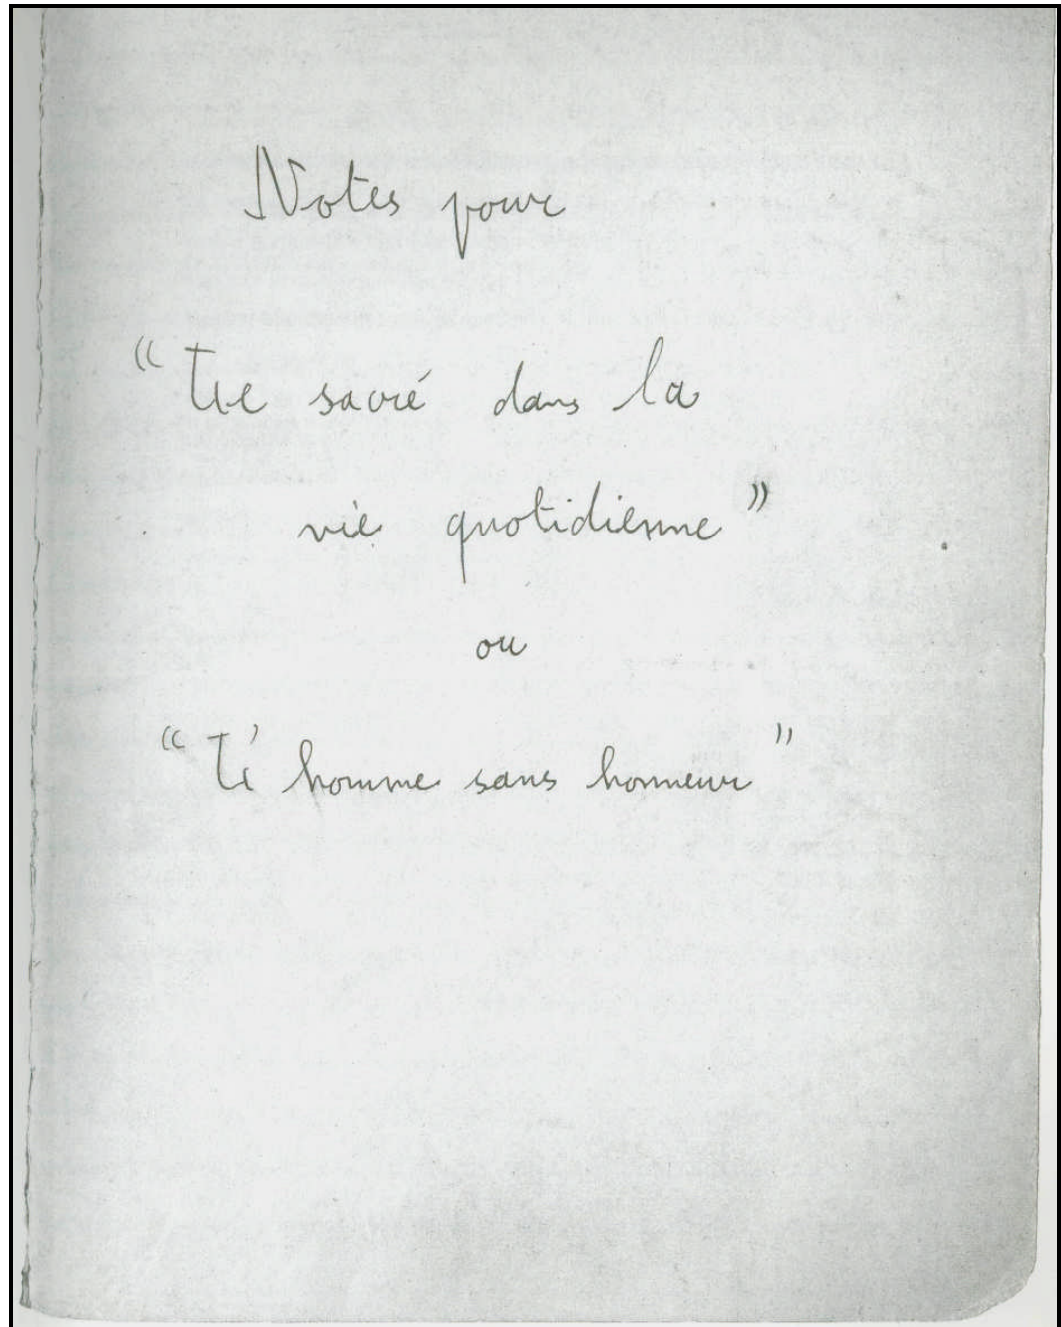 Notes pour
“Le sacré dans la
vie quotidienne”
ou
“L'homme sans honneur”